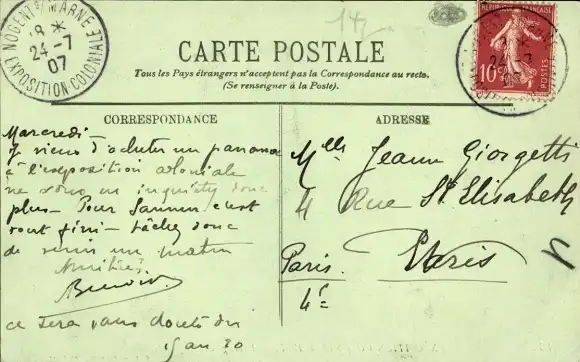 NOGENT S/ MARNE
18 *
24-7
07
EXPOSITION COLONIALE
CARTE POSTALE
Tous les Pays étrangers n'acceptent pas la Correspondance au recto.
(Se renseigner à la Poste).
RÉPUBLIQUE FRANÇAISE
10
POSTES
CORRESPONDANCE
Mercredi
Je viens d'acheter un panama
à l'exposition coloniale
ne vous en inquiétez donc
plus - Pour c'est
tout fini - tâchez donc
de venir un matin
Amitiés
Benoit
ce sera sans doute du
15 au 20
ADRESSE
Mlle Jeann Giorgetti
4 Rue Ste Elisabeth
Paris
Paris.
4e